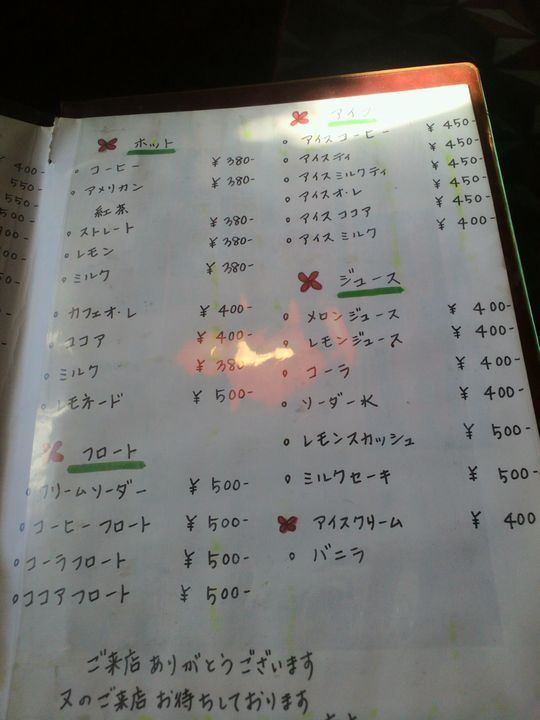 400-
550-
550-
500-
ホット
コーヒー ¥380-
アメリカン ¥380-
紅茶
ストレート ¥380-
レモン ¥380-
ミルク ¥380-
カフェオ・レ ¥400-
ココア ¥400-
ミルク ¥380-
レモネード ¥500-
フロート
クリームソーダー ¥500-
コーヒーフロート ¥500-
コーラフロート ¥500-
ココアフロート ¥500-
アイス
アイスコーヒー ¥450-
アイスティ ¥450-
アイスミルクティ ¥450-
アイスオ・レ ¥450-
アイスココア ¥450-
アイスミルク ¥400-
ジュース
メロンジュース ¥400-
レモンジュース ¥400-
コーラ ¥400-
ソーダー水 ¥400-
レモンスカッシュ ¥500-
ミルクセーキ ¥500-
アイスクリーム ¥400
バニラ
ご来店ありがとうございます
又のご来店お待ちしております